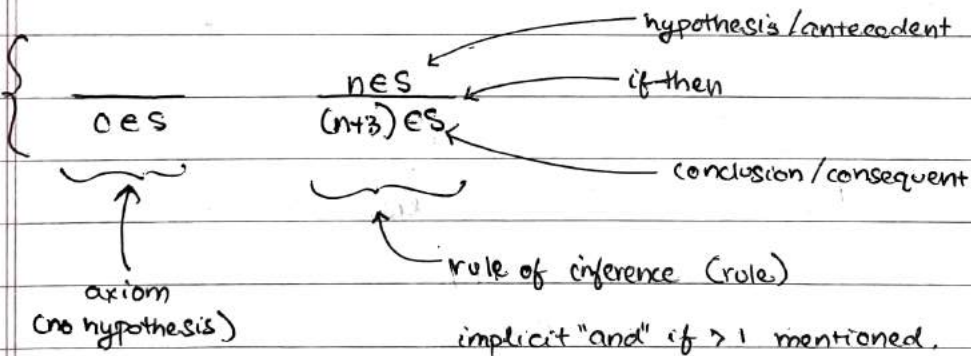 hypothesis/antecedent
n∈S
if-then
0∈S
(n+3)∈S
conclusion/consequent
rule of inference (rule)
axiom
(no hypothesis)
implicit "and" if > 1 mentioned.